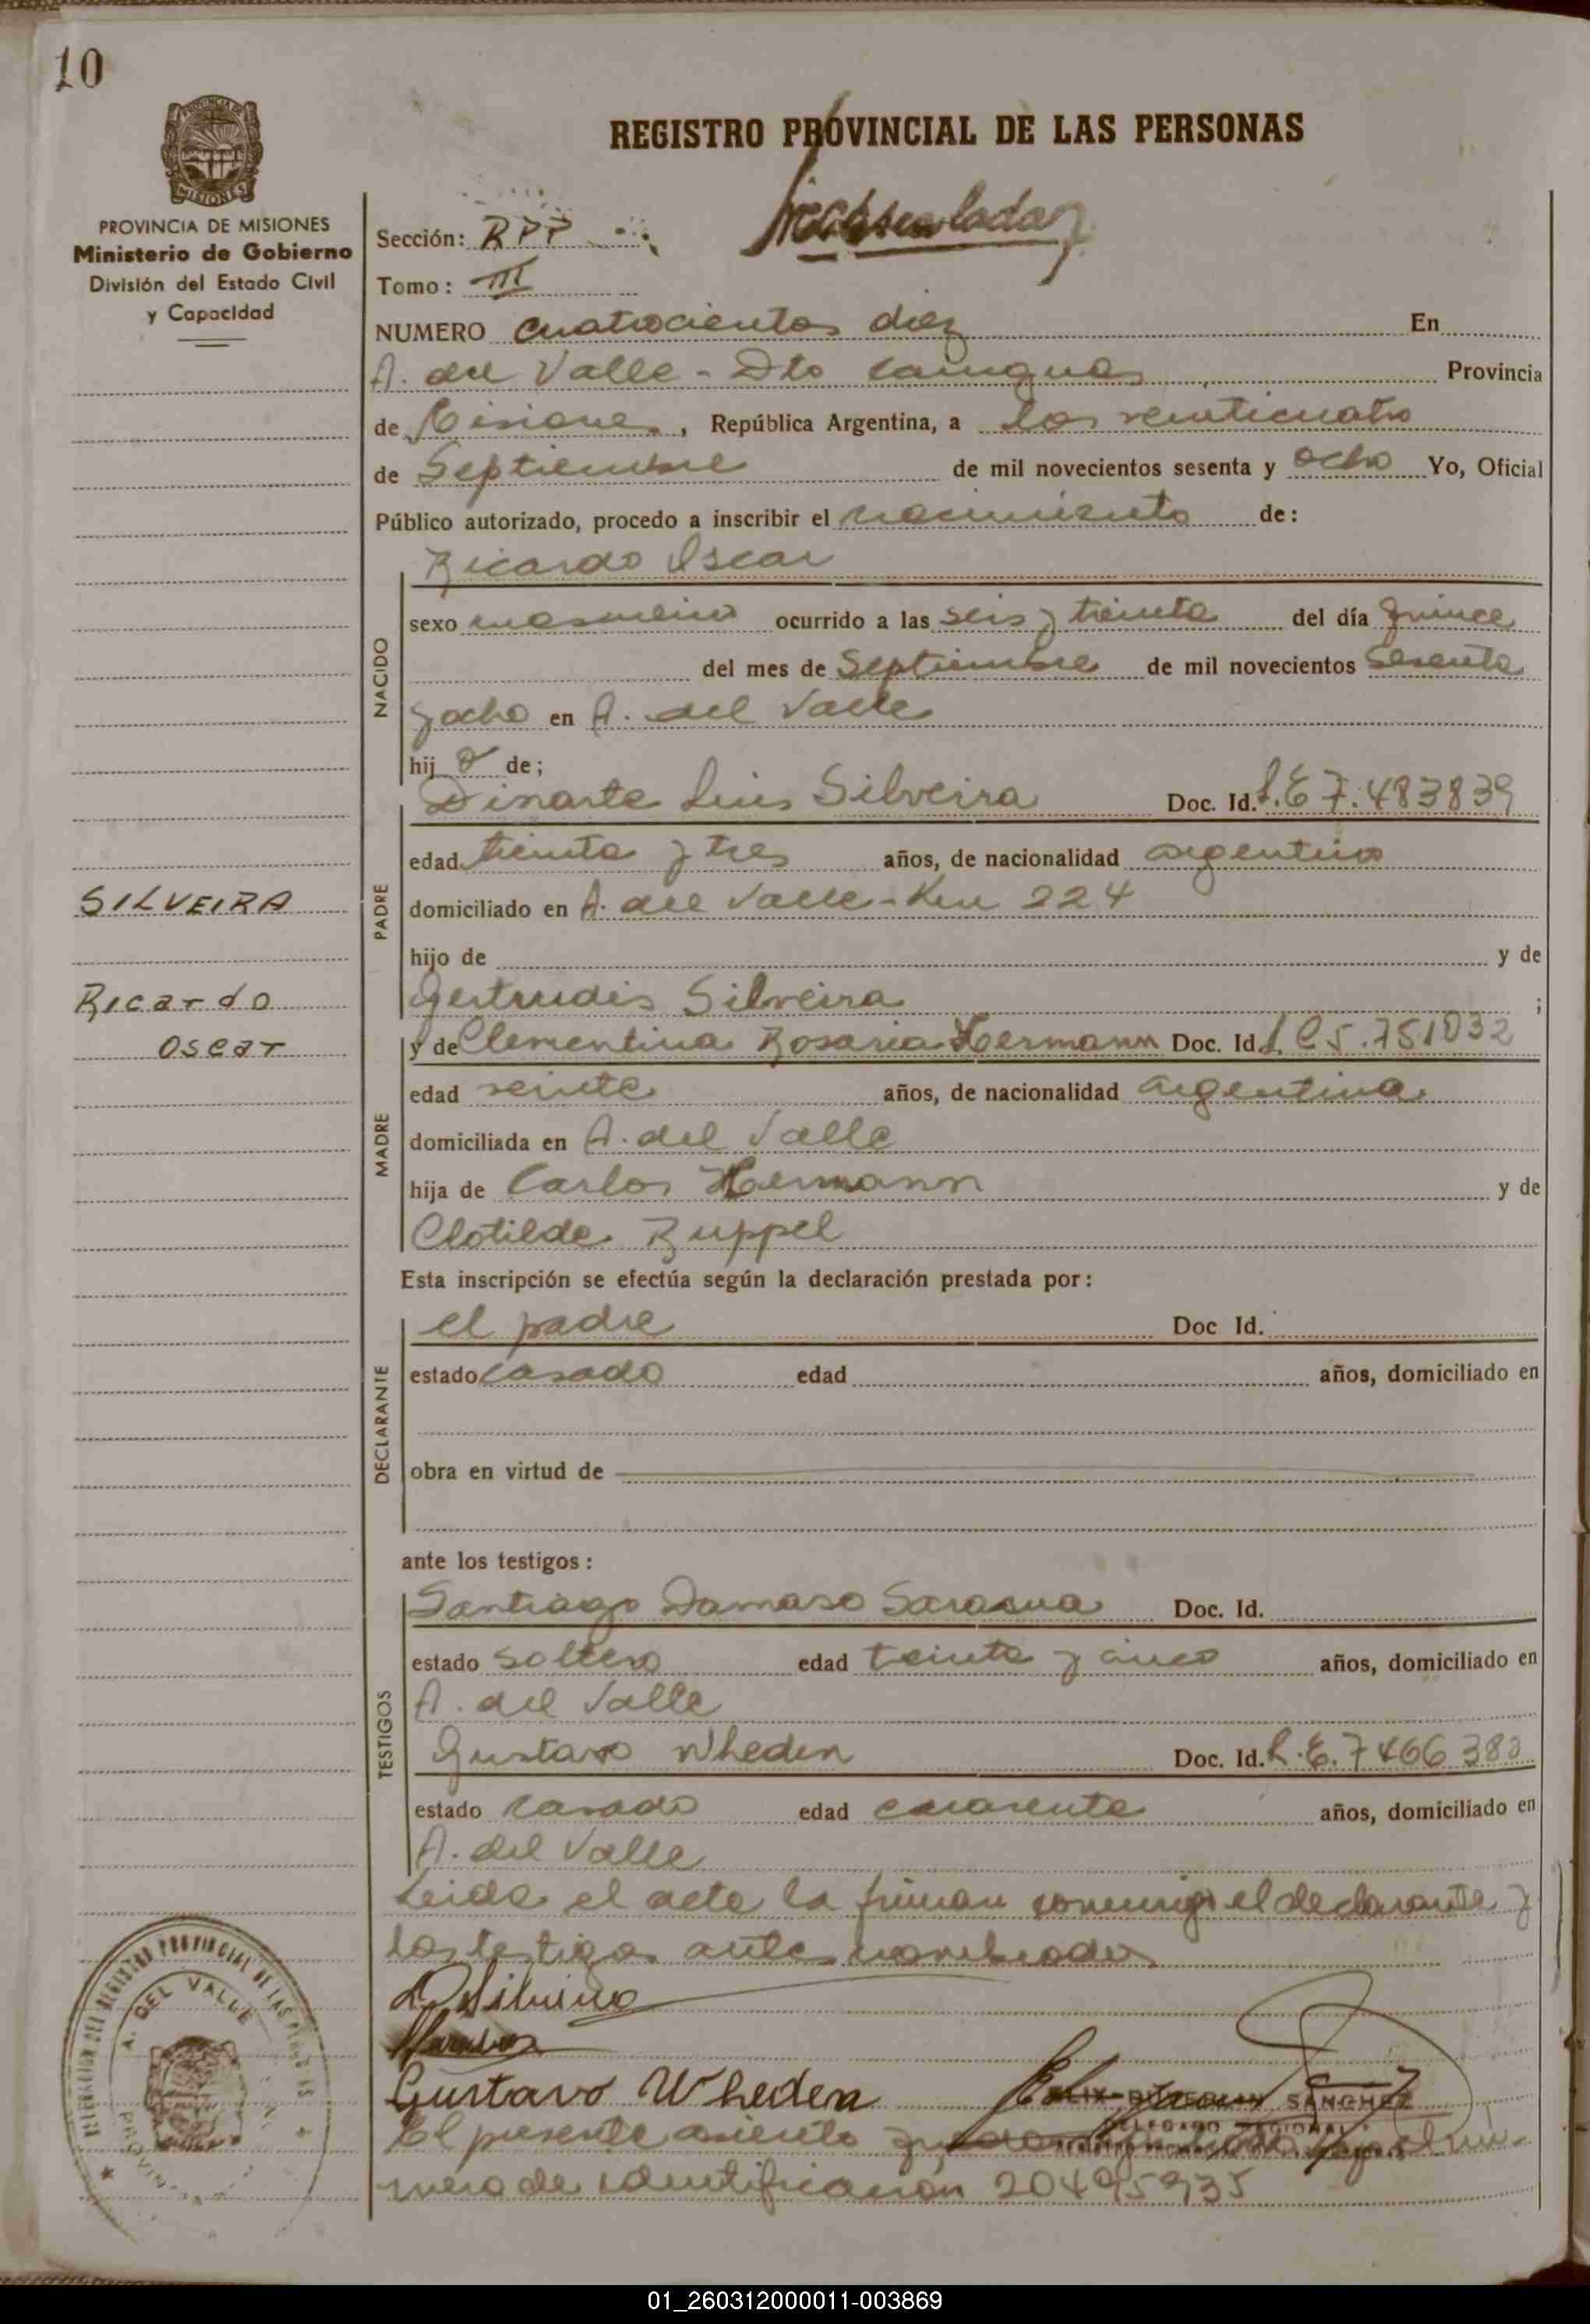 10
REGISTRO PROVINCIAL DE LAS PERSONAS
PROVINCIA DE MISIONES
Ministerio de Gobierno
División del Estado Civil
y Capacidad
Sección: RPP
Tomo: III
NUMERO cuatrocientos diez En
A. del Valle - Dto Cainguas Provincia
de Misiones, República Argentina, a los veinticuatro
de Septiembre de mil novecientos sesenta y ocho Yo, Oficial
Público autorizado, procedo a inscribir el nacimiento de:
NACIDO
Ricardo Oscar
sexo masculino ocurrido a las seis y treinta del día quince
del mes de Septiembre de mil novecientos sesenta
y ocho en A. del Valle
hij o de;
PADRE
Dinarte Luis Silveira Doc. Id. L.E 7.483839
edad treinta y tres años, de nacionalidad argentino
domiciliado en A. del Valle - Km 224
SILVEIRA
hijo de y de
Ricardo
Oscar
Gertrudis Silveira ;
MADRE
y de Clementina Rosaria Hermann Doc. Id. L C 5.751032
edad veinte años, de nacionalidad argentina
domiciliada en A. del Valle
hija de Carlos Hermann y de
Clotilde Ruppel
Esta inscripción se efectúa según la declaración prestada por:
DECLARANTE
el padre Doc Id.
estado casado edad años, domiciliado en
obra en virtud de
ante los testigos:
TESTIGOS
Santiago Damaso Sarasua Doc. Id.
estado soltero edad treinta y cinco años, domiciliado en
A. del Valle
Gustavo Wheden Doc. Id. L.E. 7466383
estado casado edad cuarenta años, domiciliado en
A. del Valle
Leida el acta la firman conmigo el declarante y
los testigos antes nombrados
D Silveira
Gustavo Wheden
SANCHEZ
DELEGADO REGIONAL
El presente asiento
mero de identificación 20495935
A. DEL VALLE
01_260312000011-003869